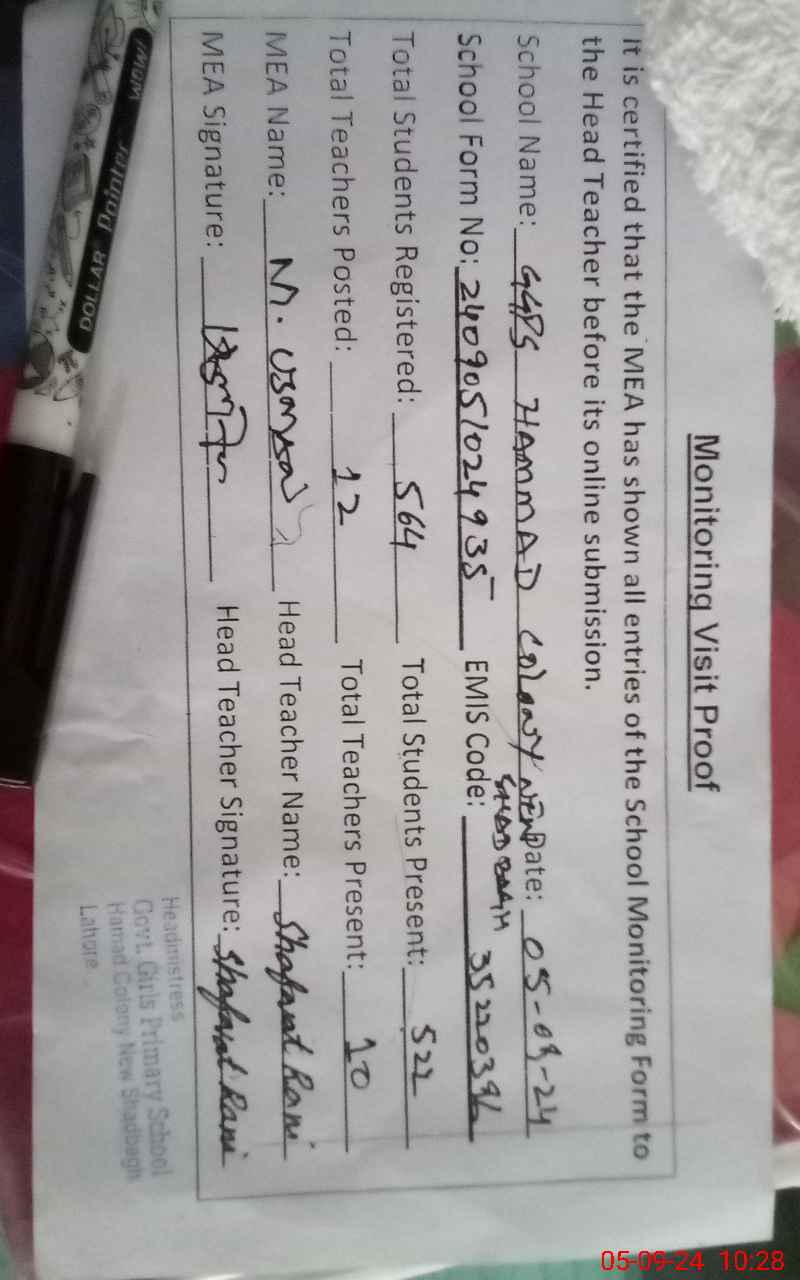 Monitoring Visit Proof
It is certified that the MEA has shown all entries of the School Monitoring Form to
the Head Teacher before its online submission.
School Name: GGPS HAMMAD Colony NEW Date: 05-09-24
SHAD BAGH
School Form No: 2409051024935 EMIS Code: 35220396
Total Students Registered: 564 Total Students Present: 522
Total Teachers Posted: 12 Total Teachers Present: 10
MEA Name: M. Usman Head Teacher Name: Shafaat Rani
MEA Signature: Head Teacher Signature: Shafaat Rani
Headmistress
Govt. Girls Primary School
Hamad Colony New Shadbagh
Lahore
DOLLAR Satin Point
05-09-24 10:28